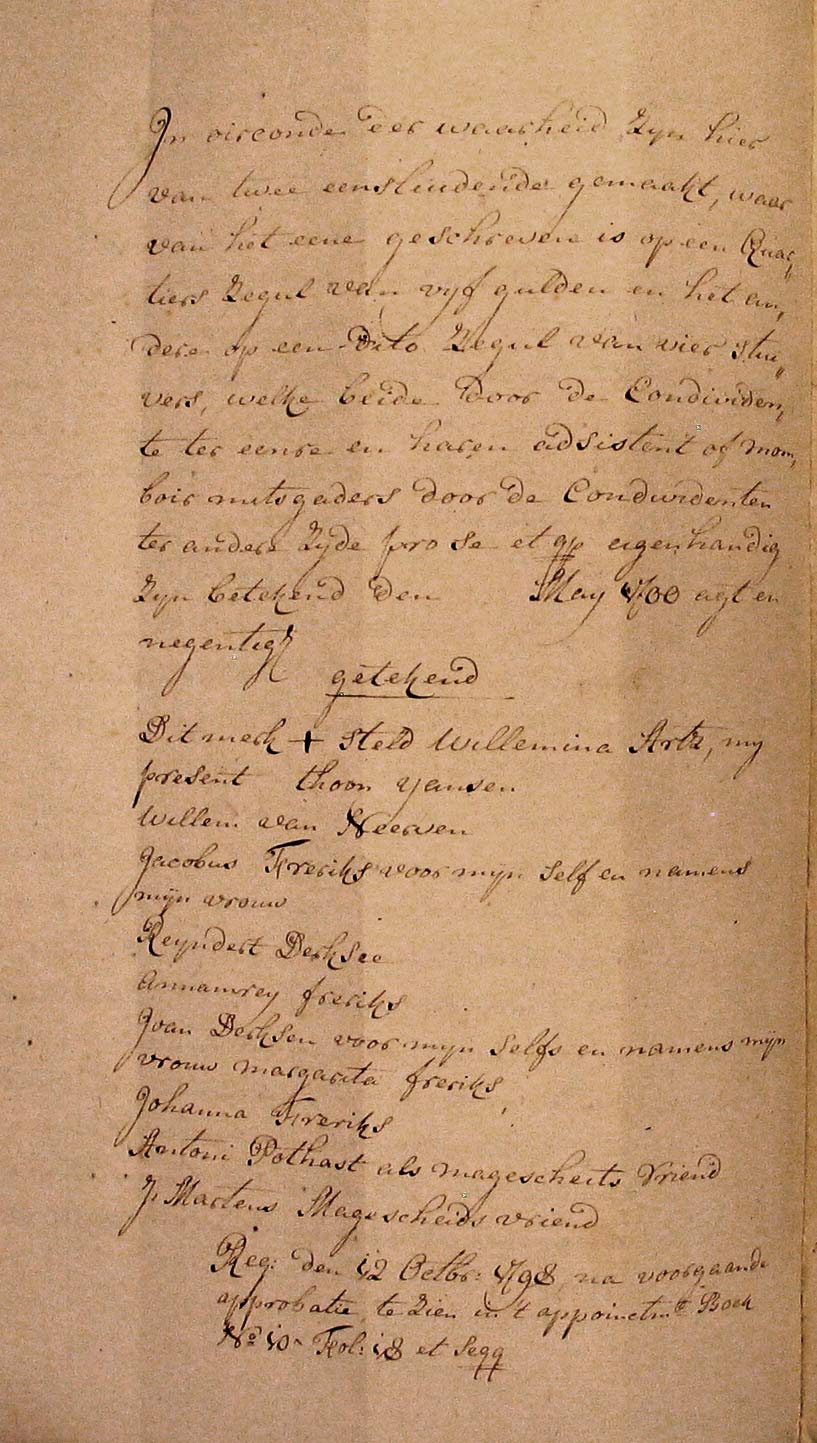 In oirconde der waarheid zyn hier
van twee eensluidende gemaakt, waar
van het eene geschreven is op een Quar„
tiers Zegul van vyf gulden en het an„
dere op een dito Zegul van vier stui„
vers, welke beide door de Condividen„
te ter eenre en haren adsistent of mom„
boir mitsgaders door de Condividenten
ter andere zyde pro se et qp eigenhandig
zyn betekend den May 1700 agt en
negentig
getekend
Dit merk + steld Willemina Artz, my
present thoon yansen
Willem van Neerven
Jacobus Freriks voor mijn self en namens
mijn vrouw
Reyndert Derksee
Annamrey freriks
Joan Derksen voor mijn selfs en namens mijn
vrouw margarita freriks
Johanna Freriks
Antoni Pothast als magescheits Vriend
J. Martens Magescheids vriend
Reg: den 12 Octbr: 1798 na voorgaande
approbatie te zien in 't appoinctmt Boek
No 10 Fol: 18 et seqq